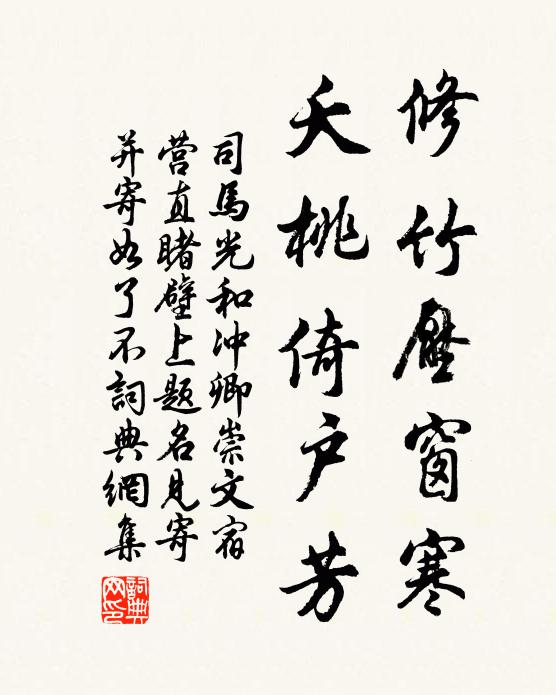 修竹壓窗寒
夭桃倚户芳
司馬光和冲卿崇文宿
营直睹壁上题名見寄
并寄如了不詞典網集
詞典
网印